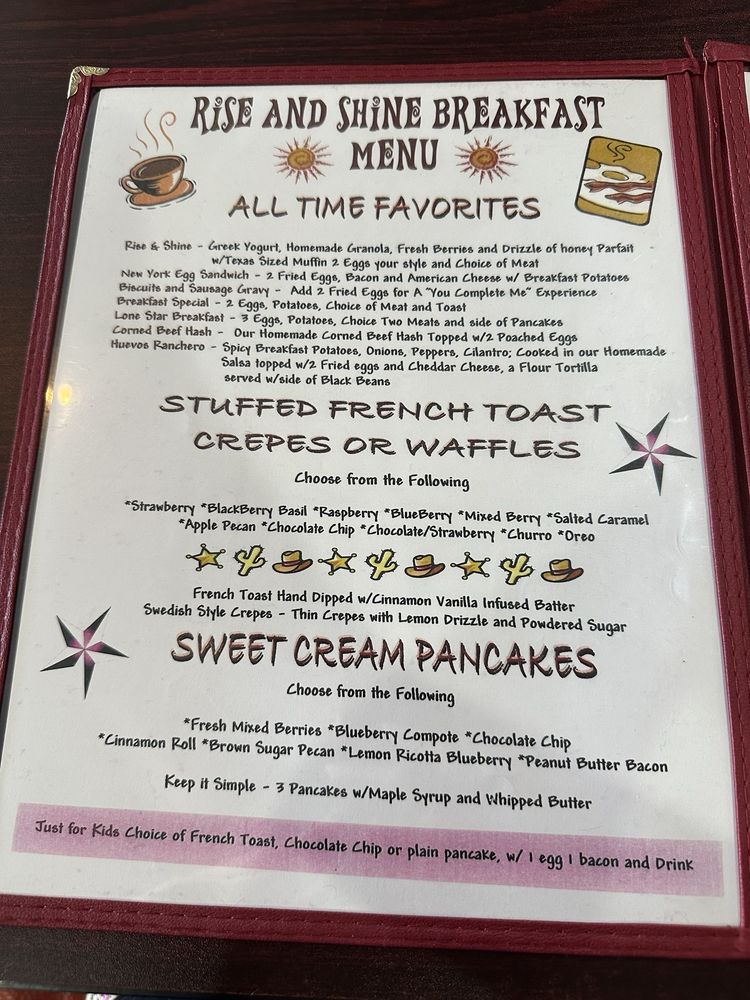 RISE AND SHINE BREAKFAST
MENU
ALL TIME FAVORITES
Rise & Shine - Greek Yogurt, Homemade Granola, Fresh Berries and Drizzle of honey Parfait
w/Texas Sized Muffin 2 Eggs your style and Choice of Meat
New York Egg Sandwich - 2 Fried Eggs, Bacon and American Cheese w/ Breakfast Potatoes
Biscuits and Sausage Gravy - Add 2 Fried Eggs for A "You Complete Me" Experience
Breakfast Special - 2 Eggs, Potatoes, Choice of Meat and Toast
Lone Star Breakfast - 3 Eggs, Potatoes, Choice Two Meats and side of Pancakes
Corned Beef Hash - Our Homemade Corned Beef Hash Topped w/2 Poached Eggs
Huevos Ranchero - Spicy Breakfast Potatoes, Onions, Peppers, Cilantro; Cooked in our Homemade
Salsa topped w/2 Fried eggs and Cheddar Cheese, a Flour Tortilla
served w/side of Black Beans
STUFFED FRENCH TOAST
CREPES OR WAFFLES
Choose from the Following
*Strawberry *BlackBerry Basil *Raspberry *BlueBerry *Mixed Berry *Salted Caramel
*Apple Pecan *Chocolate Chip *Chocolate/Strawberry *Churro *Oreo
French Toast Hand Dipped w/Cinnamon Vanilla Infused Batter
Swedish Style Crepes - Thin Crepes with Lemon Drizzle and Powdered Sugar
SWEET CREAM PANCAKES
Choose from the Following
*Fresh Mixed Berries *Blueberry Compote *Chocolate Chip
*Cinnamon Roll *Brown Sugar Pecan *Lemon Ricotta Blueberry *Peanut Butter Bacon
Keep it Simple - 3 Pancakes w/Maple Syrup and Whipped Butter
Just for Kids Choice of French Toast, Chocolate Chip or plain pancake, w/ 1 egg 1 bacon and Drink